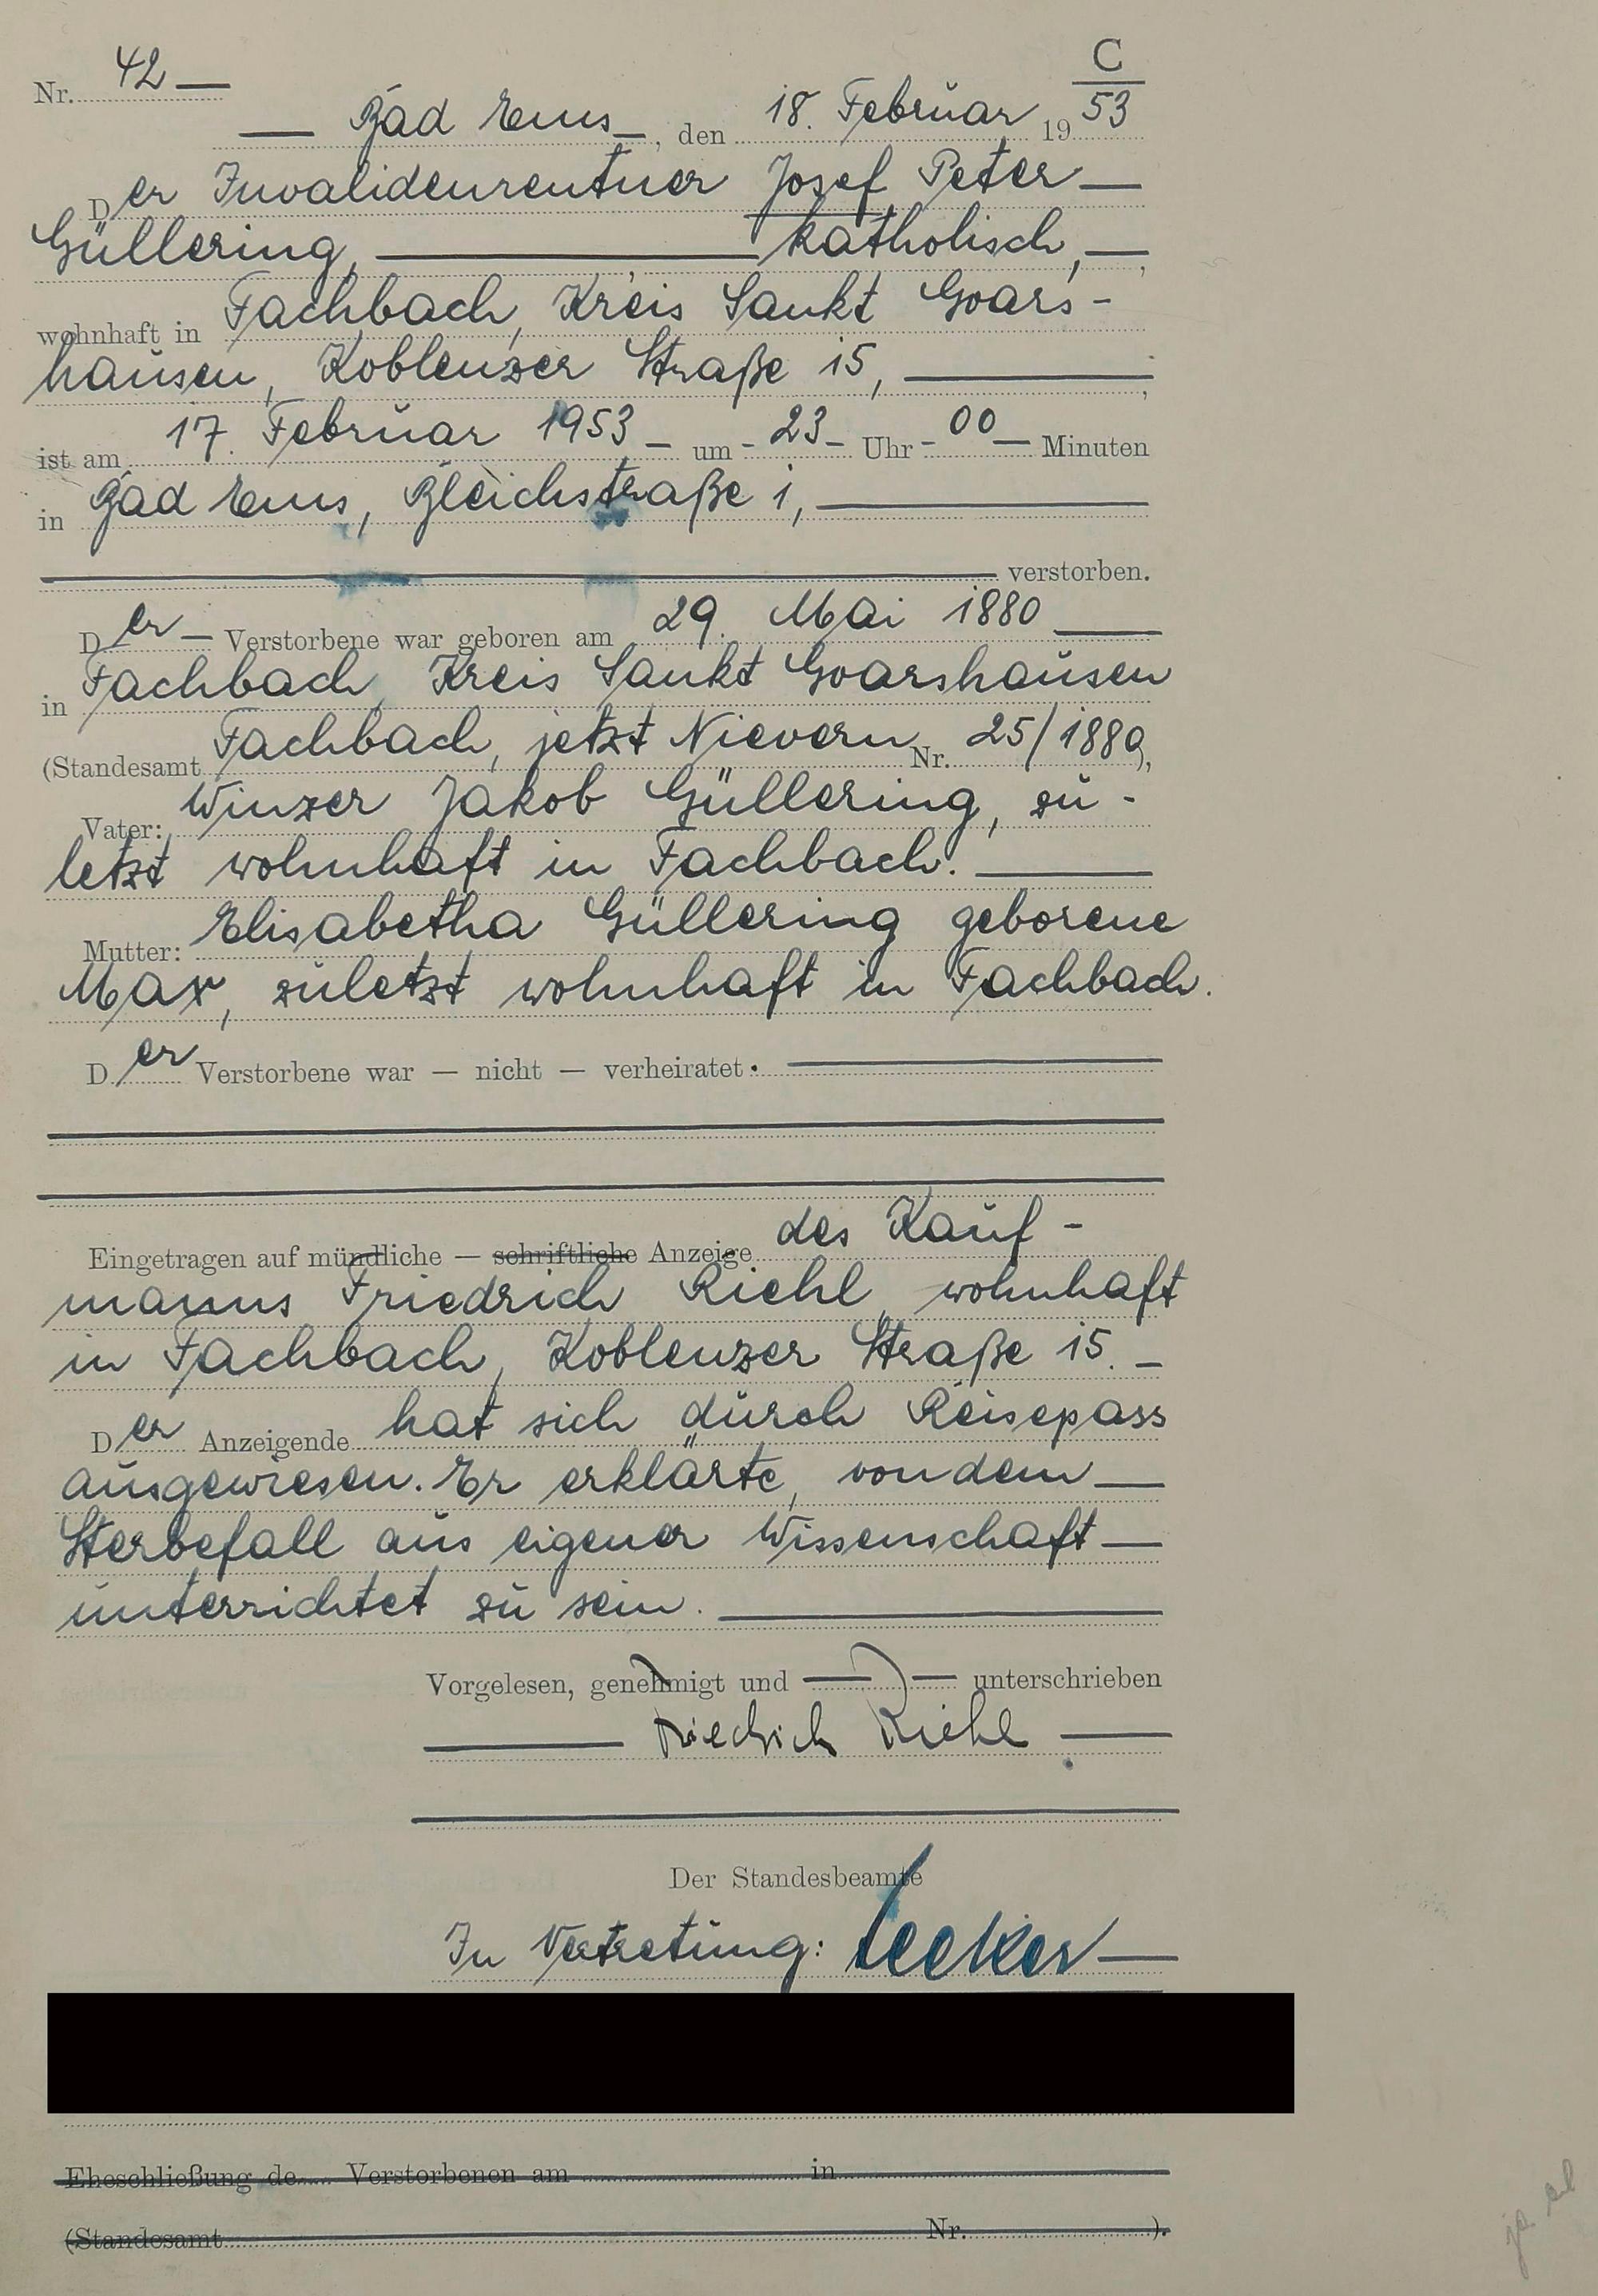 C
Nr. 42 —
— Bad Ems —, den 18. Februar 1953
Der Invalidenrentner Josef Peter —
Güllering, — katholisch, —,
wohnhaft in Fachbach, Kreis Sankt Goars-
hausen, Koblenzer Straße 15, —,
ist am 17. Februar 1953 — um - 23 - Uhr - 00 — Minuten
in Bad Ems, Bleichstraße 1, —
— verstorben.
Der — Verstorbene war geboren am 29. Mai 1880 —
in Fachbach, Kreis Sankt Goarshausen
(Standesamt Fachbach, jetzt Nievern Nr. 25/1880),
Vater: Winzer Jakob Güllering, zu-
letzt wohnhaft in Fachbach. —
Mutter: Elisabetha Güllering geborene
Max, zuletzt wohnhaft in Fachbach.
Der Verstorbene war — nicht — verheiratet. —
Eingetragen auf mündliche — schriftliche Anzeige des Kauf-
manns Friedrich Riehl, wohnhaft
in Fachbach, Koblenzer Straße 15. —
Der Anzeigende hat sich durch Reisepass
ausgewiesen. Er erklärte, von dem —
Sterbefall aus eigener Wissenschaft —
unterrichtet zu sein. —
Vorgelesen, genehmigt und — unterschrieben
— Friedrich Riehl —
Der Standesbeamte
In Vertretung:
Eheschließung de Verstorbenen am in
(Standesamt Nr. ).